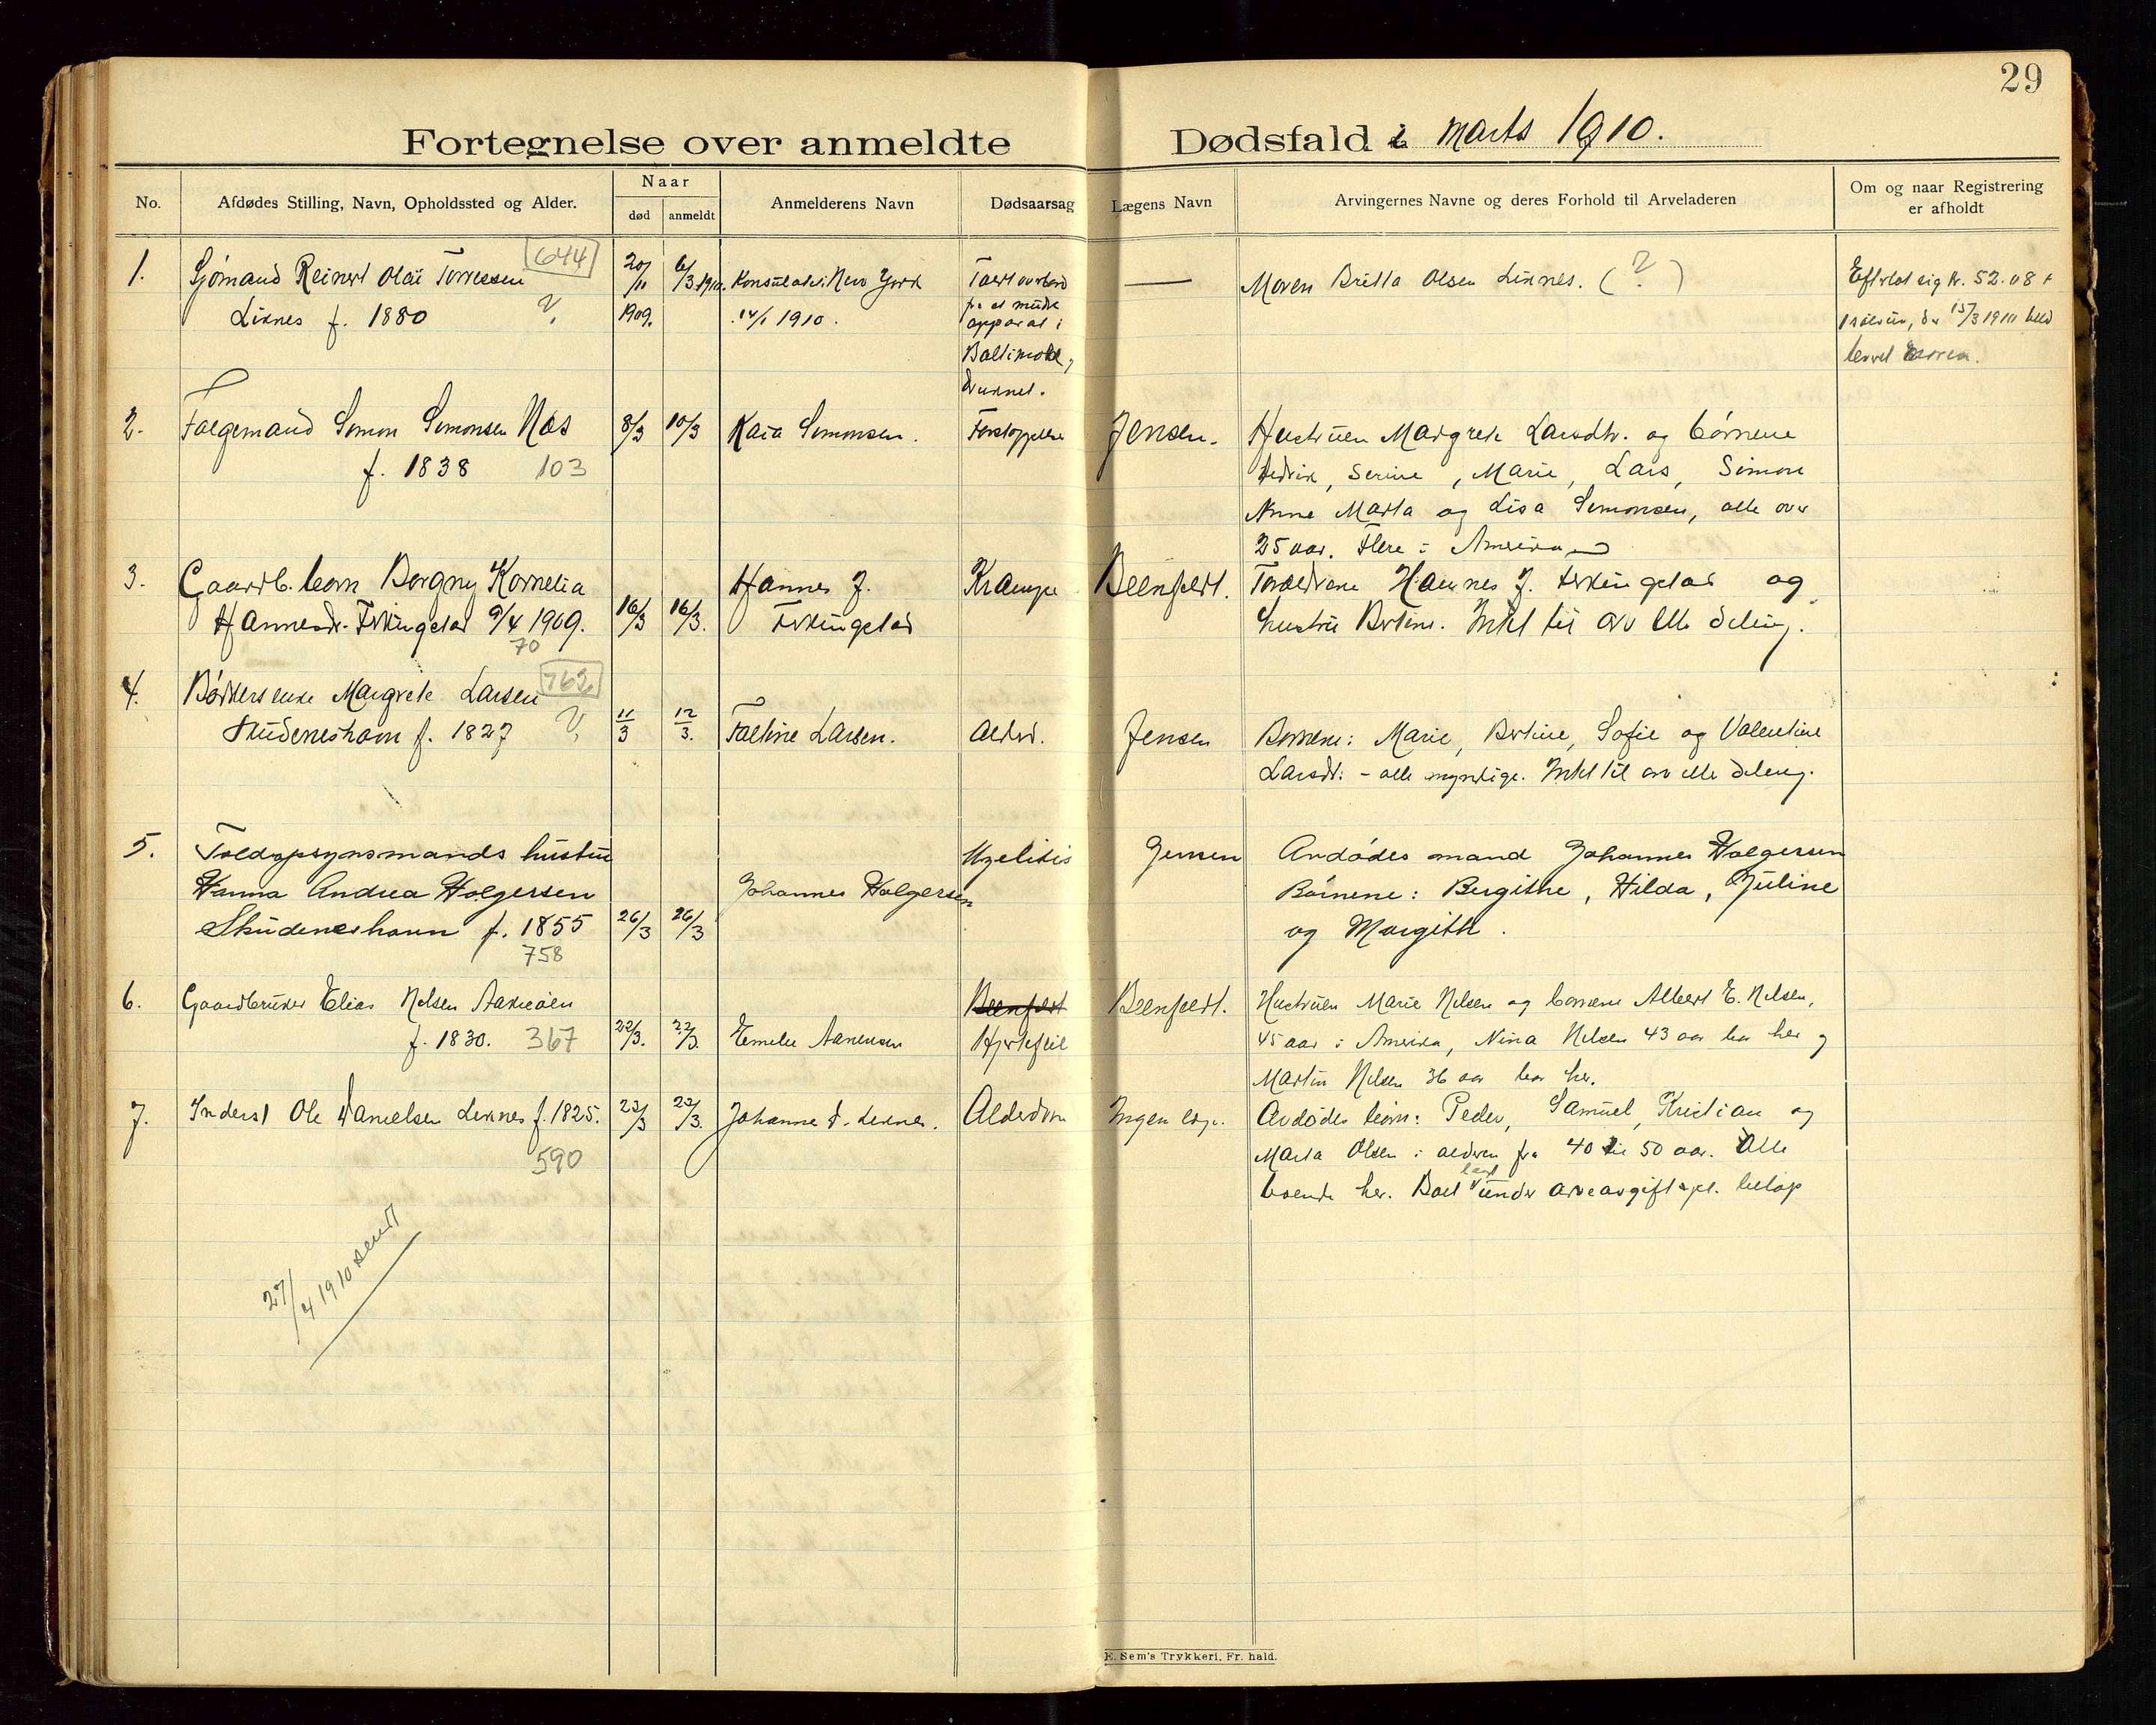 29
Fortegnelse over anmeldte Dødsfald i Marts 1910.
No.
Afdødes Stilling, Navn, Opholdssted og Alder.
Naar
død
anmeldt
Anmelderens Navn
Dødsaarsag
Lægens Navn
Arvingernes Navne og deres Forhold til Arveladeren
Om og naar Registrering
er afholdt
1.
Sjømand Reinert Olai Torressen
644
Liknes f. 1880
20/11
1909.
6/3 1910.
Konsulatet i New York
14/1 1910.
Baltimore,
druknet.
—
Moren Britta Olsen Liknes. (?)
Efterlot sig kr. 52.08 +
15/3 1910
2.
Følgemand Simon Simonsen Nes
f. 1838 103
8/3
10/3
Kaia Simonsen.
Forstoppelse
Jensen.
Hustruen Margrete Larsdtr. og børnene
Serine, Marie, Lars, Simon
Anne Marta og Lisa Simonsen, alle over
25 aar. Flere i Amerika
3.
Gaardb. barn Borgny Kornelia
Hannesdr. Ferkingstad 9/4 1909.
70
16/3
16/3.
Hannes J.
Ferkingstad
Krampe
Beenfeldt.
Forældrene Hannes J. Ferkingstad og
hustru Bertine. Intet til arv elle deling.
4.
Bødkers enke Margrete Larsen
763
Skudeneshavn f. 1827
11/3
12/3.
Faltine Larsen.
Alderd.
Jensen
Børnene: Marie, Bertine, Sofie og Valentine
Larsdt. - alle myndige. Intet til arv elle deling.
5.
Toldopsynsmands hustru
Hanna Andrea Holgersen
Skudeneshavn f. 1855
758
26/3
26/3
Johannes Holgersen
Myelitis
Jensen
Avdødes mand Johannes Holgersen
Børnene: Bergithe, Hilda, Juline
og Margith.
6.
Gaardbruker Elias Nilsen Aakreøen
f. 1830. 367
22/3.
22/3.
Emelie Aanensen
Beenfeldt
Hjertefeil
Beenfeldt.
Hustruen Marie Nilsen og børnene Albert E. Nilsen,
45 aar i Amerika, Nina Nilsen 43 aar bor her og
Martin Nilsen 36 aar bor her.
7.
Inderst Ole Danielsen Liknes f. 1825.
590
23/3
23/3.
Johanne D. Liknes.
Alderdom
Ingen læge.
Avdødes børn: Peder, Samuel, Kristian og
Marta Olsen i alderen fra 40 til 50 aar. Alle
boende her. Boet langt under arveavgiftspl. beløp
27/4 1910 sendt
E. Sem's Trykkeri, Fr. hald.